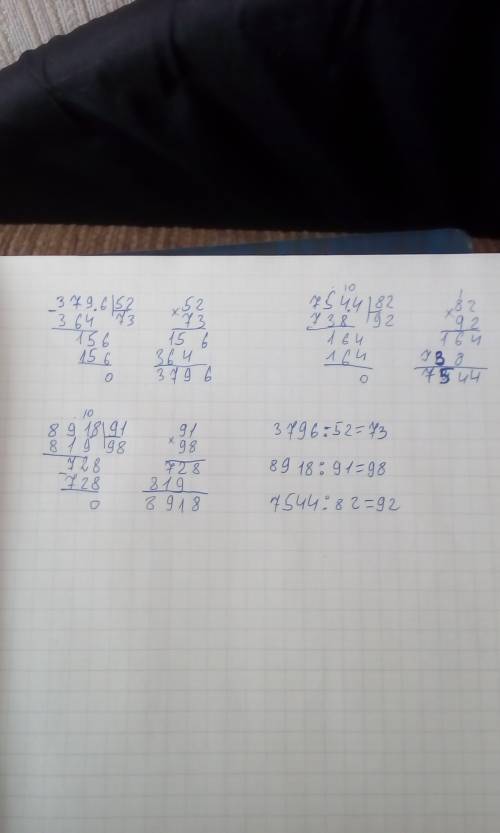 379.6 52
364 73
156
156
0
× 52
73
156
364
3796
10
7544 82
738 92
164
164
0
1
× 82
92
164
738
7544
10
8918 91
819 98
728
728
0
× 91
98
728
819
8918
3796:52=73
8918:91=98
7544:82=92